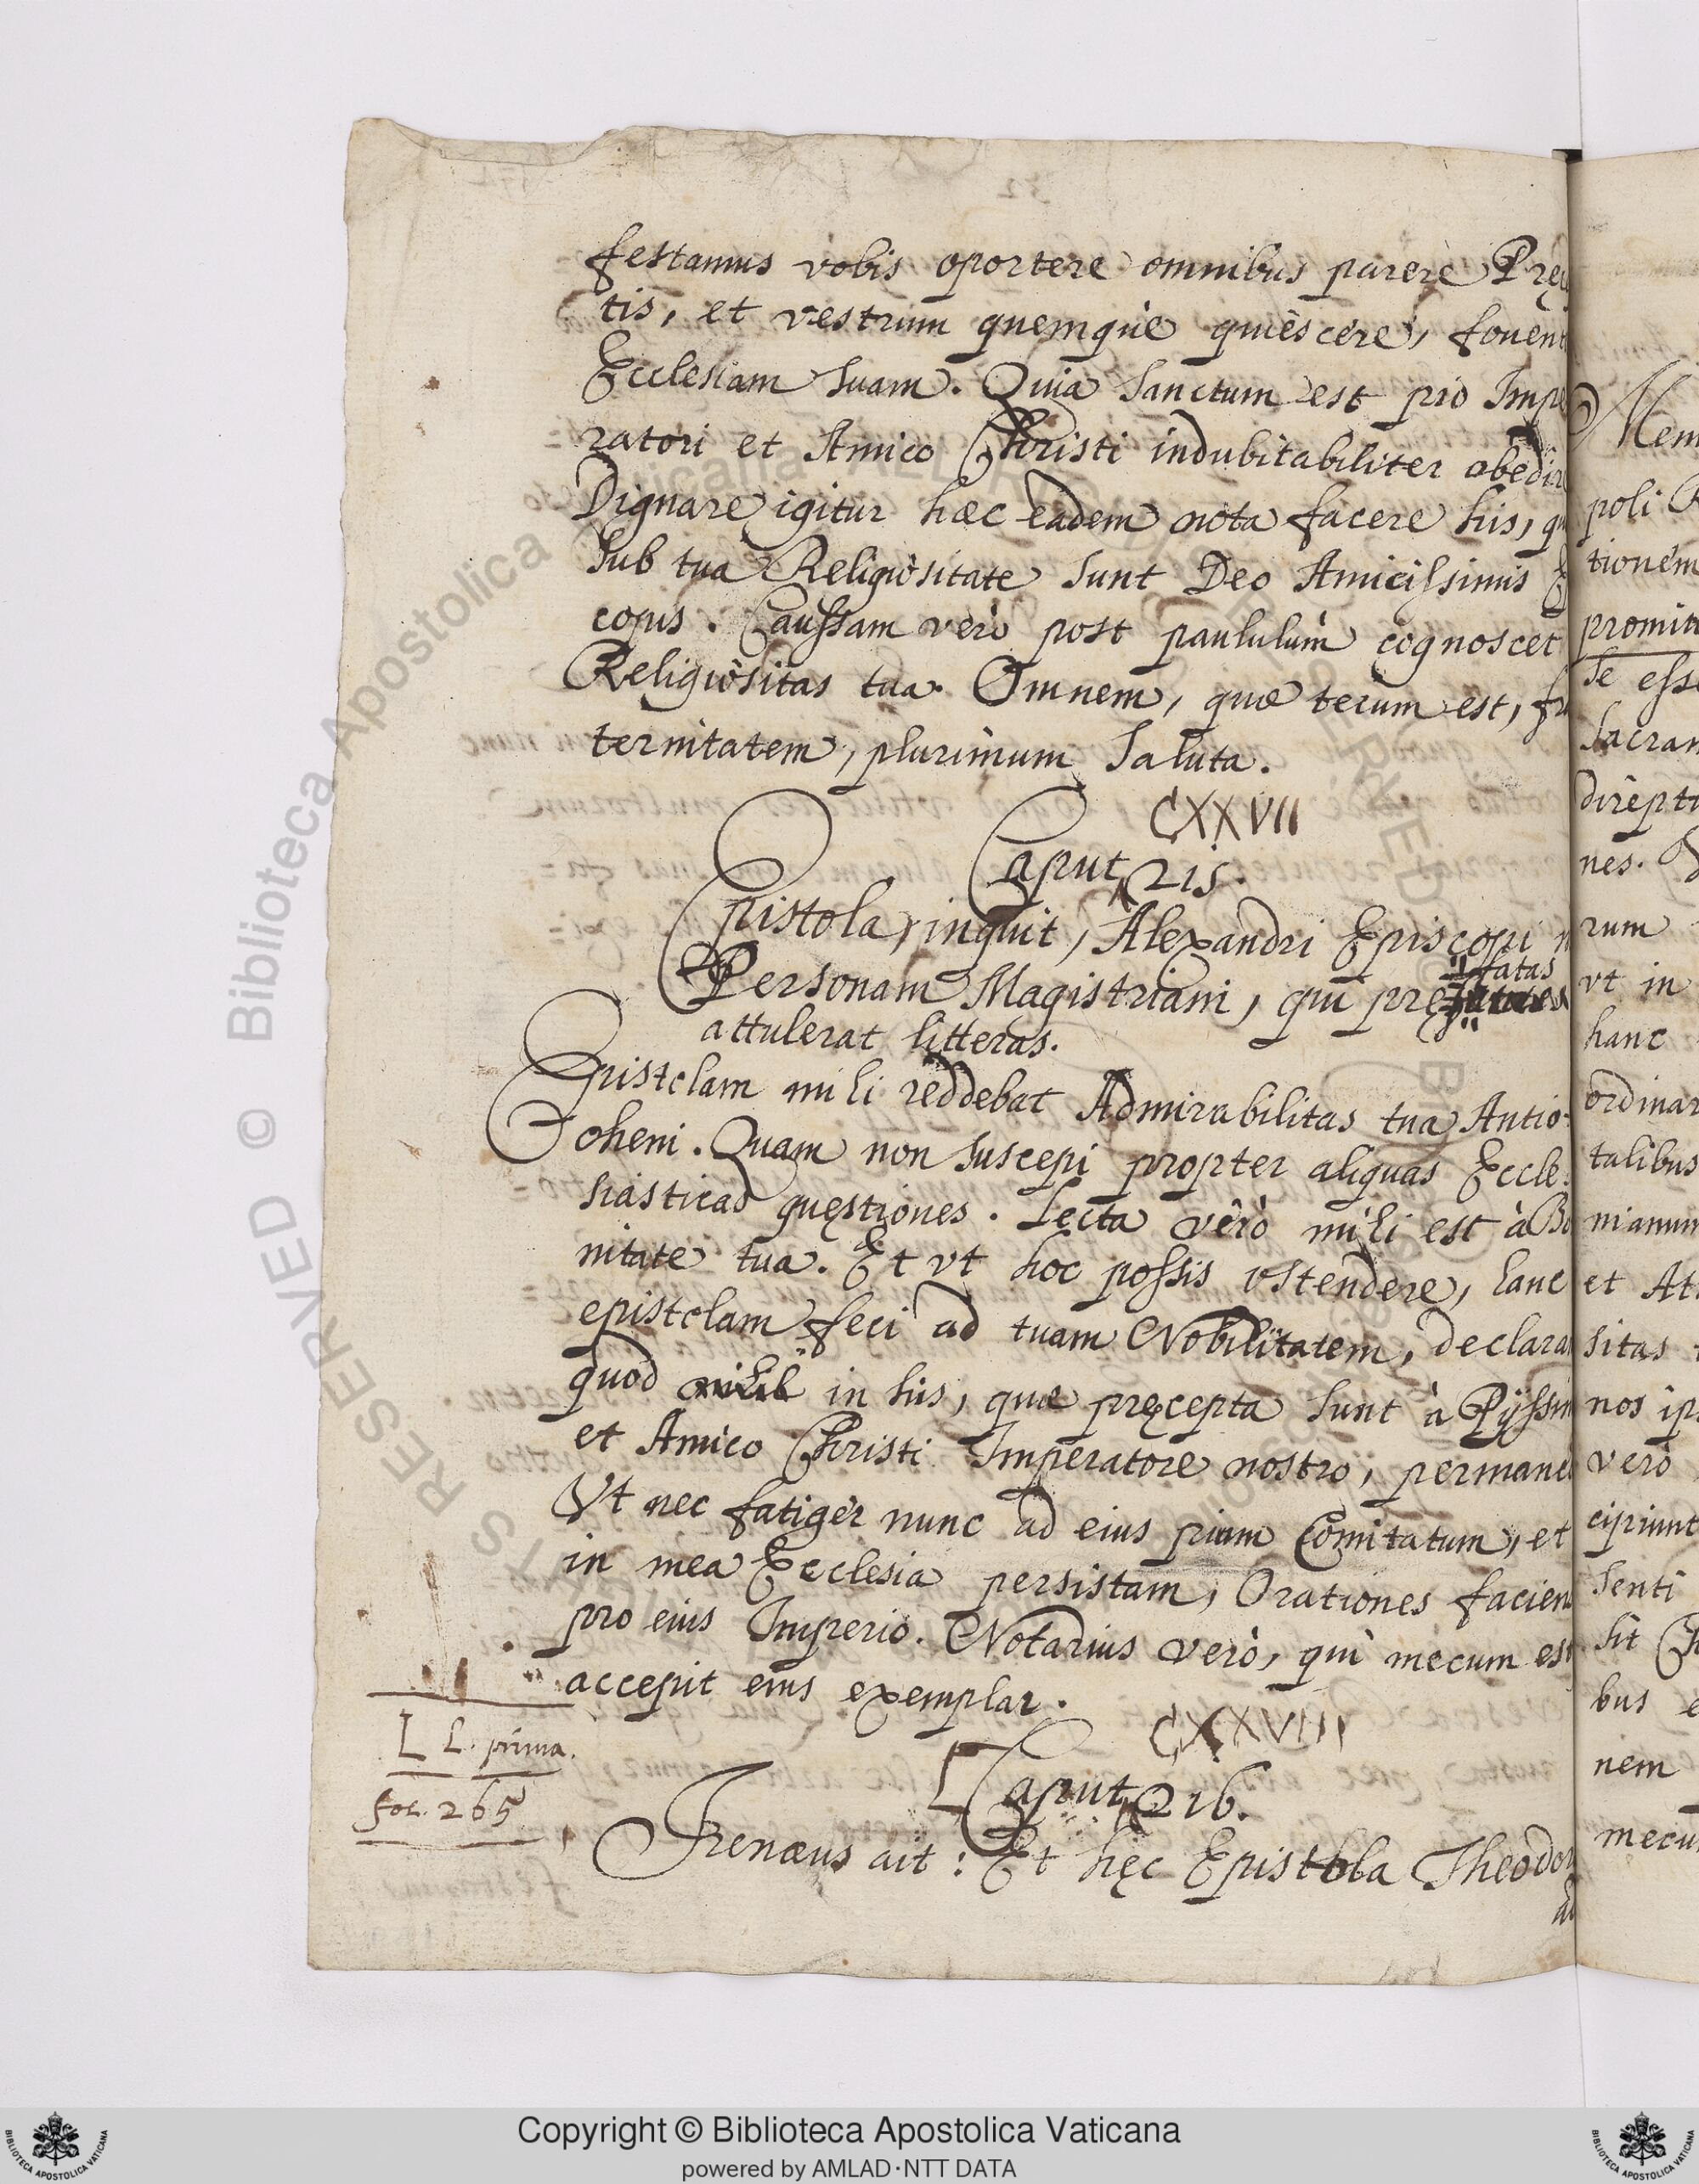 festamus vobis oportere omnibus parere Pręc
tis, et vestrum quemque quiescere, fouent
Ecclesiam suam. Quia sanctum est pio Impe
ratori et Amico Christi indubitabiliter obedir
Dignare igitur hæc eadem nota facere his, qu
sub tua Religiositate sunt Deo Amicissimis E
copis. Caussam verò post paululùm cognoscet
Religiositas tua. Omnem, quæ tecum est, fra
ternitatem, plurimum saluta.
CXXVII
Caput 215.
Epistola, inquit, Alexandri Episcopi
Personam Magistriani, qui pręfatas
attulerat litteras.
Epistolam mihi reddebat Admirabilitas tua Antio-
cheni. Quam non suscepi propter aliquas Eccle-
siasticas quęstiones. Lecta verò mihi est à Bo
nitate tua. Et vt hoc possis ostendere, hanc
epistolam feci ad tuam Nobilitatem, declara
quod in his, quæ pręcepta sunt à Pijssim
et Amico Christi Imperatore nostro, permane
Vt nec fatiger nunc ad eius pium Comitatum, et
in mea Ecclesia persistam, Orationes facien
pro eius Imperio. Notarius verò, qui mecum est
accepit eius exemplar.
L L. prima.
fol. 265
CXXVIII
Caput 216.
Irenæus ait: Et hęc Epistola Theodor
Mem
poli
tionem
promitt
se esse
sacram
direpti
nes.
rum
vt in
hanc
ordinar
talibus
nianum
et At
sitas
nos ip
verò
cipiunt
senti
sit Ch
bus e
nem
mecu
© Biblioteca Apostolica Vaticana
Copyright © Biblioteca Apostolica Vaticana
powered by AMLAD·NTT DATA
BIBLIOTECA APOSTOLICA VATICANA
BIBLIOTECA APOSTOLICA VATICANA